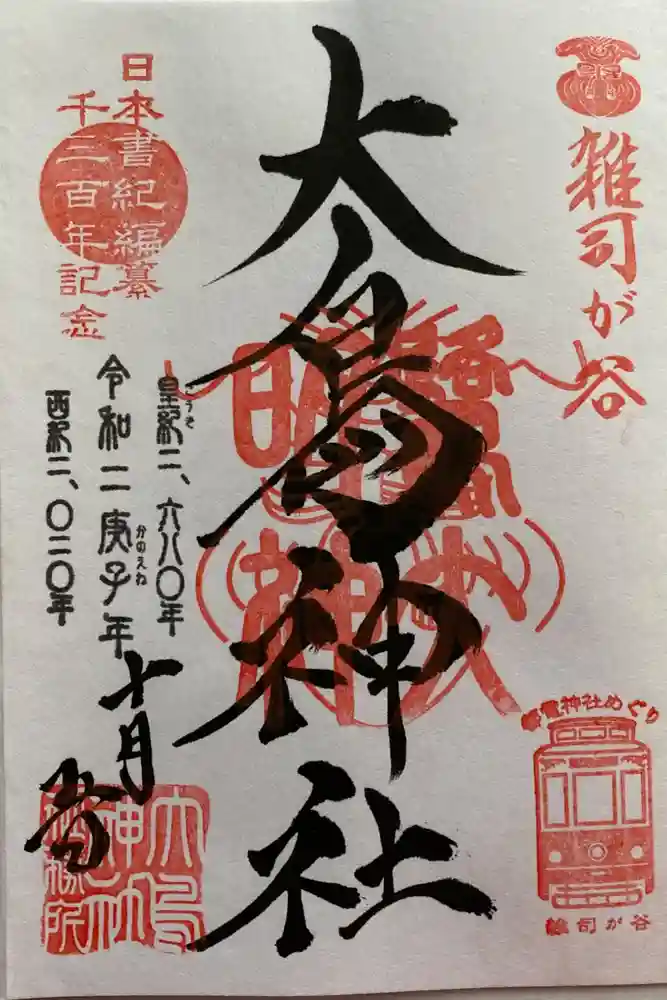 雑司が谷
大鳥神社
鷲大
明神
日本書紀編纂
千三百年記念
皇紀二、六八〇年
こうき
令和二庚子年
かのえね
西紀二、〇二〇年
十月
大鳥
神社
社務所
都電神社めぐり
雑司が谷